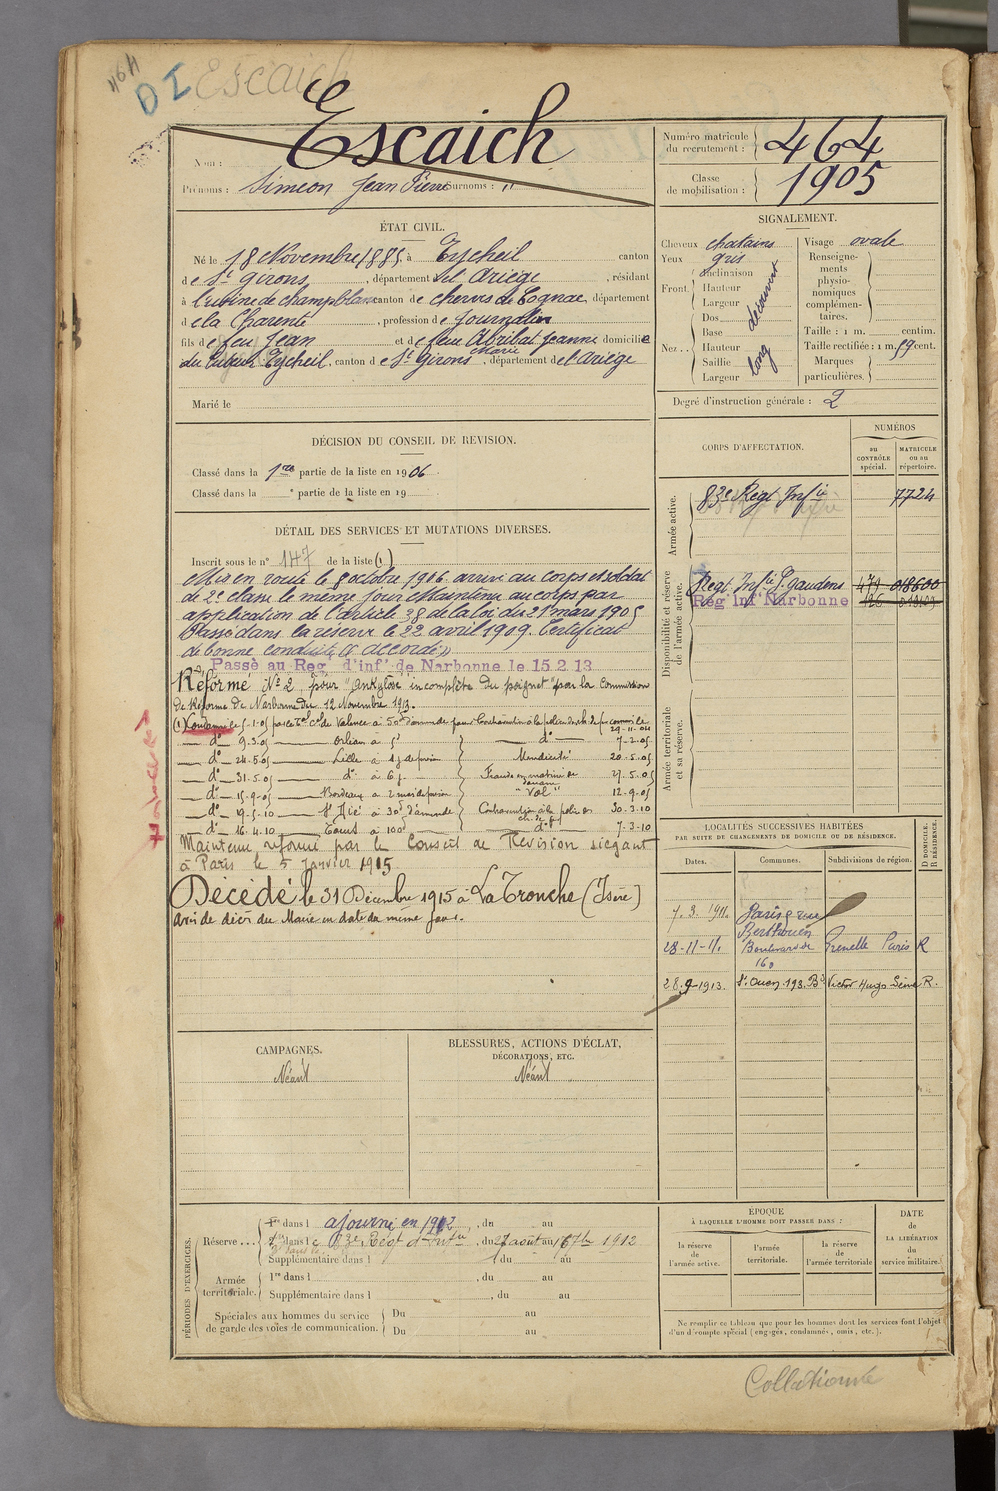 464
D I Escaich
Nom : Escaich
Prénoms : Simeon Jean Pierre Surnoms : "
Numéro matricule du recrutement : 464
Classe de mobilisation : 1905
ÉTAT CIVIL.
Né le 18 Novembre 1885 à Eycheil canton
de St Girons, département de l'Ariège, résidant
à l'usine de champblanc canton de cherves de Cognac, département
de la Charente, profession de Journalier
fils de feu Jean et de feue Abribat Jeanne domiciliés
Marie
Eycheil, canton de St Girons, département de l'Ariège
Marié le
SIGNALEMENT.
Cheveux chatains
Yeux gris
Front. Inclinaison
Hauteur
Largeur
découvert
Nez Dos
Base
Hauteur
Saillie
Largeur
long
Visage ovale
Renseignements physionomiques complémentaires.
Taille : 1 m. centim.
Taille rectifiée : 1 m. 59 cent.
Marques particulières.
Degré d'instruction générale : 2
DÉCISION DU CONSEIL DE REVISION.
Classé dans la 1re partie de la liste en 1906
Classé dans la e partie de la liste en 19
CORPS D'AFFECTATION.
NUMÉROS
au CONTRÔLE spécial.
MATRICULE ou au répertoire.
Armée active.
83e Regt Infie 7724
Disponibilité et réserve de l'armée active.
Regt Infie St gaudens 479 018600
Reg Inf Narbonne
Armée territoriale et sa réserve.
DÉTAIL DES SERVICES ET MUTATIONS DIVERSES.
Inscrit sous le n° 147 de la liste (1)
Mis en route le 8 octobre 1906 arrivé au corps et soldat
de 2e classe le même jour Maintenu au corps par
application de l'article 38 de la loi du 21 mars 1905
Passé dans la réserve le 22 avril 1909. Certificat
de bonne conduite « accordé »
Passé au Reg d'inf de Narbonne le 15.2.13
Réformé No 2, pour "ankylose incomplète du poignet" par la Commission
de Réforme de Narbonne du 12 Novembre 1913.
(1) Condamné le 5-1-05 par le Tal Cel de Valence à 50f d'amende pour Contravention à la police des ch. de f. commise le 29-11-04
do 9-3-05 Orléan à 5f do 7-2-05
do 24-5-05 Lille à 4j de prison Mendicité 20-5-05
do 31-5-05 do à 6j Fraude en matière de douane 27-5-05
do 15-9-05 Bordeaux à 2 mois de prison "Vol" 12-9-05
do 19-5-10 St Dié à 30f d'amende Contravention à la police des ch. de fer 30-3-10
do 16-4-10 Tours à 100f do 7-3-10
Maintenu réformé par le Conseil de Révision siégant
à Paris le 5 Janvier 1915
Décédé le 31 Décembre 1915 à La Tronche (Isère)
avis de décès du Maire en date du même jour.
LOCALITÉS SUCCESSIVES HABITÉES
PAR SUITE DE CHANGEMENTS DE DOMICILE OU DE RÉSIDENCE.
Dates.
Communes.
Subdivisions de région.
D DOMICILE. R RÉSIDENCE.
7.3.1911. Paris 9 rue
28-11-11. Boulevard de Grenelle Paris R
160
28.9-1913. St Ouen 193 Bd Victor Hugo Seine R.
CAMPAGNES.
Néant
BLESSURES, ACTIONS D'ÉCLAT,
DÉCORATIONS, ETC.
Néant
PÉRIODES D'EXERCICES.
Réserve...
1re dans l ajourné en 1912, du au
dans le 83e Regt d'Infie, du 27 août au 16 7bre 1912
Supplémentaire dans l du au
Armée territoriale.
1re dans l, du au
Supplémentaire dans l, du au
Spéciales aux hommes du service de garde des voies de communication.
Du au
Du au
ÉPOQUE
À LAQUELLE L'HOMME DOIT PASSER DANS :
la réserve de l'armée active.
l'armée territoriale.
la réserve de l'armée territoriale
DATE de LA LIBÉRATION du service militaire.
Ne remplir ce tableau que pour les hommes dont les services font l'objet
d'un décompte spécial (engagés, condamnés, omis, etc.).
Collationné